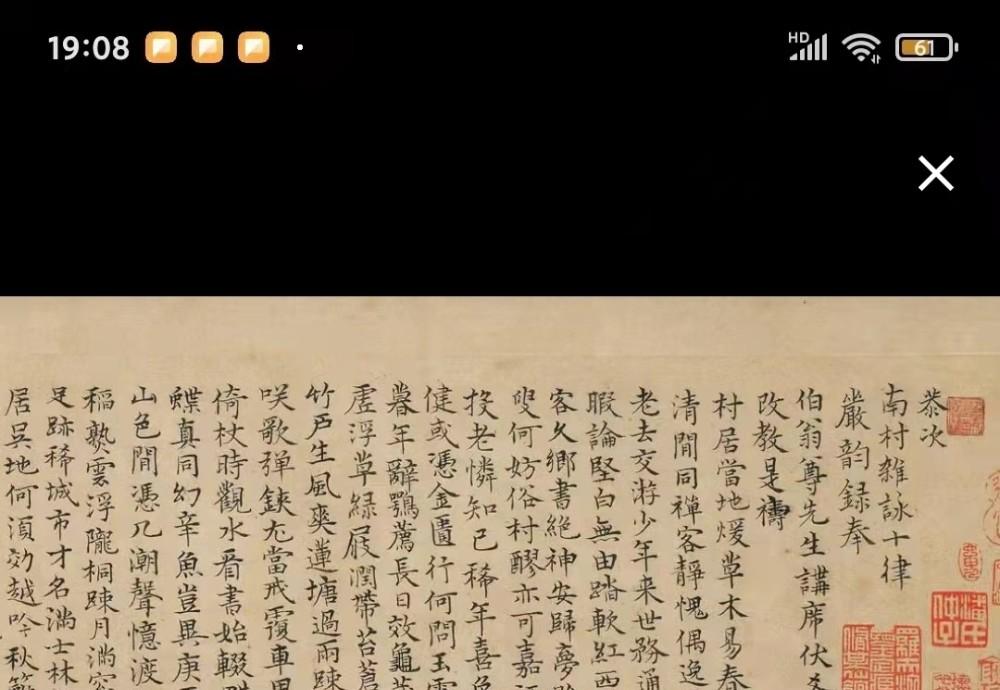 19:08
HD
61
恭次
南村雜詠十律
嚴韵録奉
伯翁尊先生講席伏
改教是禱
村居當地煖草木易春
清閒同禪客靜愧偶逸
老去交游少年来世務通
暇論堅白無由踏軟紅西
客久鄉書絶神安歸夢
叟何妨俗村醪亦可嘉
投老憐知己稀年喜
健或憑金匱行何問玉
暮年辭鶚薦長日效龜
虚浮草緑屐潤帶苔蒼
竹戸生風爽蓮塘過雨踈
咲歌弹鋏尢當戒覆車
倚杖時觀水看書始輟
蝶真同幻辛魚豈異庚
山色閒憑几潮聲憶渡
稲熟雲浮隴桐踈月滿
足跡稀城市才名滿士林
居吳地何湏効越吟秋